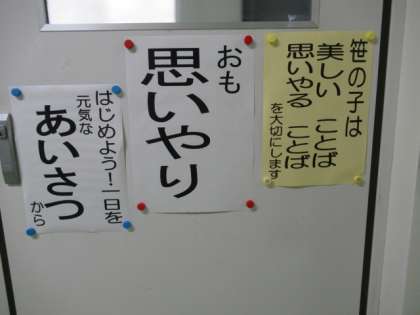 笹の子は
美しい　ことば
思いやる　ことば
を大切にします
おも
思いやり
はじめよう！一日を
元気な
あいさつ
から